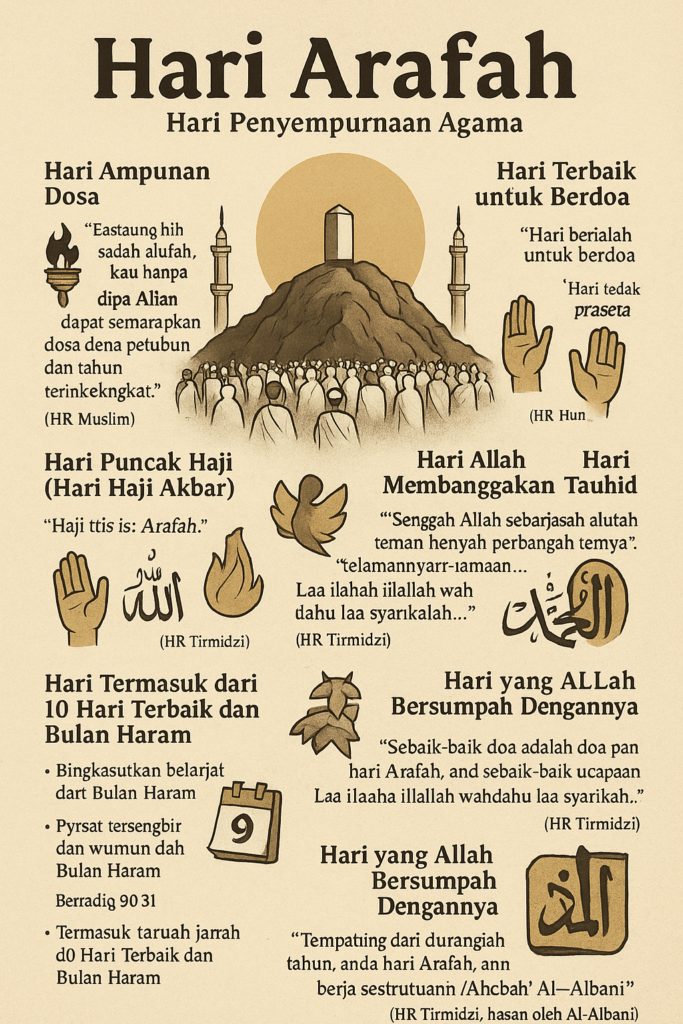 Hari Arafah
Hari Penyempurnaan Agama
Hari Ampunan
Dosa
“Eastaung hih
sadah alufah,
kau hanpa
dipa Alian
dapat semarapkan
dosa dena petubun
dan tahun
terinkekngkat.”
(HR Muslim)
Hari Terbaik
untuk Berdoa
“Hari berialah
untuk berdoa
‘Hari tedak
praseta
(HR Hun
Hari Puncak Haji
(Hari Haji Akbar)
“Haji ttis is: Arafah.”
الله
(HR Tirmidzi)
Hari Allah
Membanggakan
Hari
Tauhid
“‘Senggah Allah sebarjasah alutah
teman henyah perbangah temya”.
“telamannyarr-ıamaan...
Laa ilahah iilallah wah
dahu laa syarıkalah...”
(HR Tirmidzi)
Hari Termasuk dari
10 Hari Terbaik dan
Bulan Haram
• Bingkasutkan belarjat
dart Bulan Haram
• Pyrsat tersengbir
dan wumun dah
Bulan Haram
Berradiq 90 31
• Termasuk taruah jarrah
d0 Hari Terbaik dan
Bulan Haram
9
Hari yang ALLah
Bersumpah Dengannya
“Sebaik-baik doa adalah doa pan
hari Arafah, and sebaik-baik ucapaan
Laa ilaaha illallah wahdahu laa syarikah..”
(HR Tirmidzi)
Hari yang Allah
Bersumpah
Dengannya
“Tempatıing dari durangiah
tahun, anda hari Arafah, ann
berja sestrutuanın /Ahcbah’ Al—Albani”
(HR Tirmidzi, hasan oleh Al-Albani)